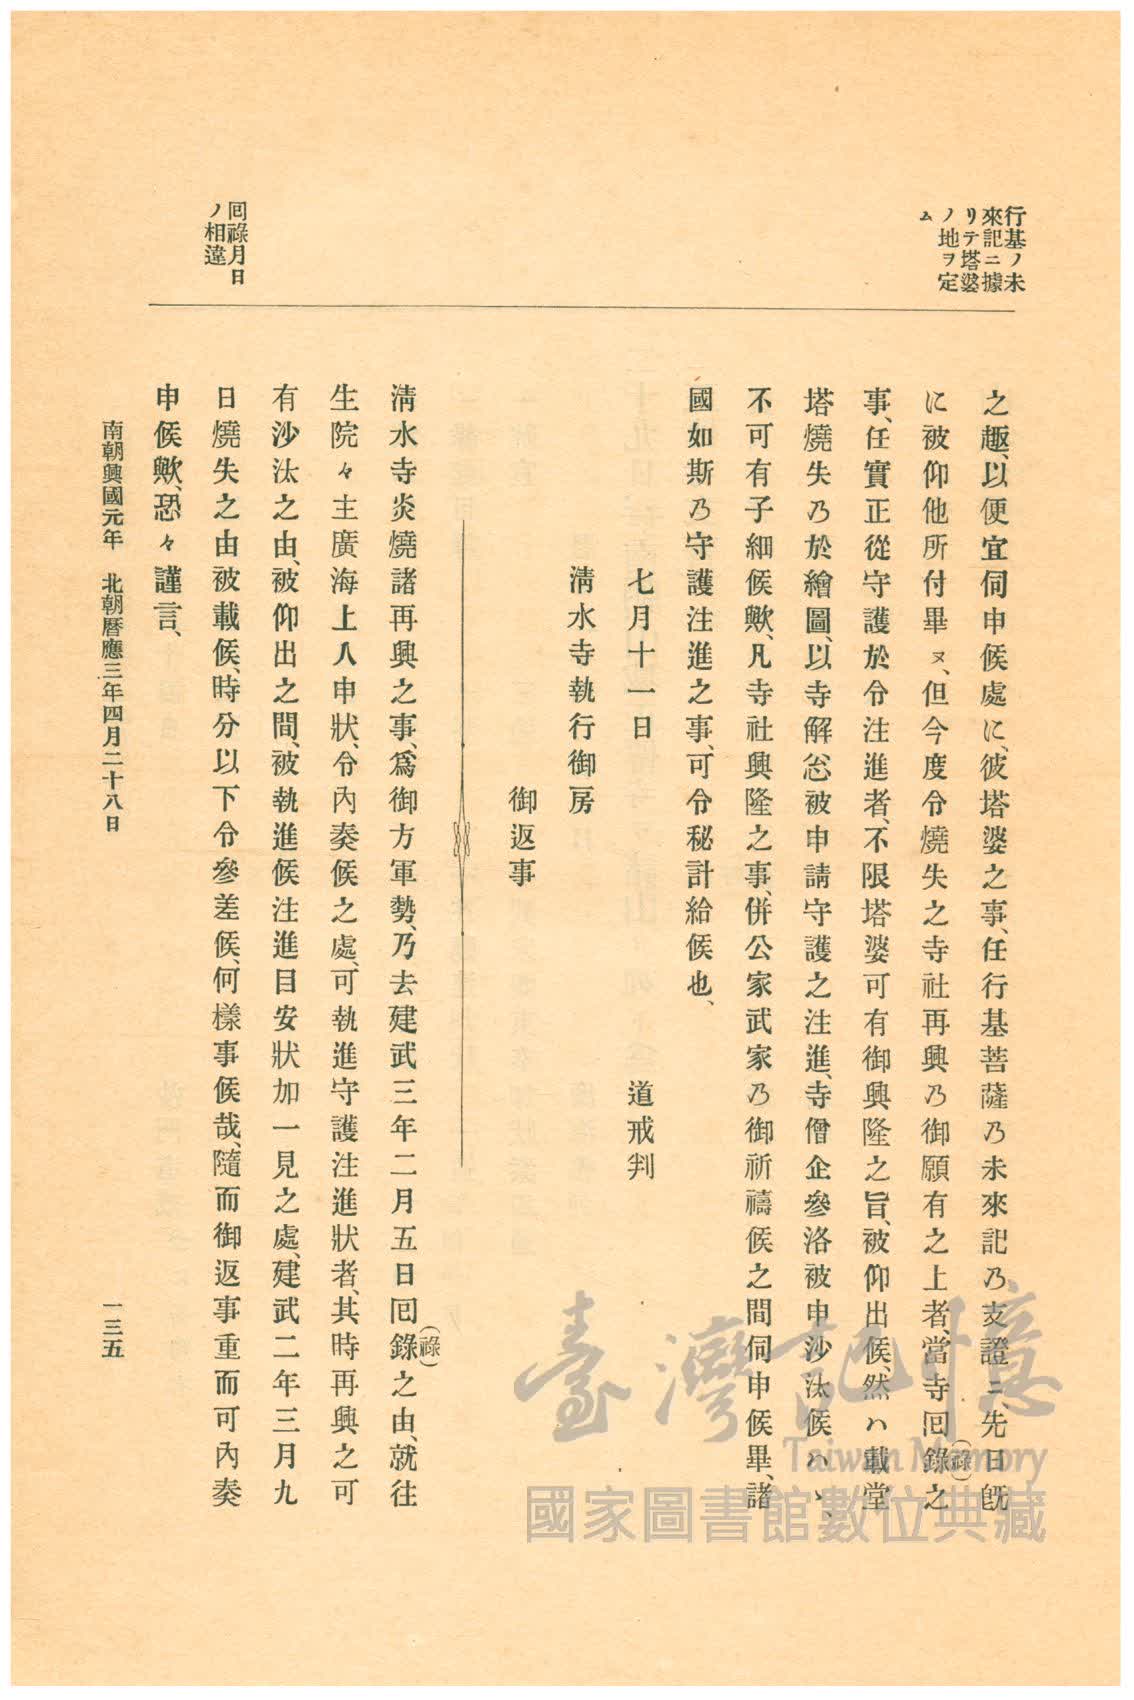 行基ノ未
來記ニ據
リテ塔婆
ノ地ヲ定
ム
之趣、以便宜伺申候處に、彼塔婆之事、任行基菩薩乃未來記乃支證ニ、先日既
に被仰他所付畢ヌ、但今度令燒失之寺社再興乃御願有之上者、當寺囘錄(祿)之
事、任實正從守護於令注進者、不限塔婆可有御興隆之旨、被仰出候、然ハ載堂
塔燒失乃於繪圖、以寺解忩被申請守護之注進、寺僧企參洛被申沙汰候ハヽ、
不可有子細候歟、凡寺社興隆之事、併公家武家乃御祈禱候之間伺申候畢、諸
國如斯乃守護注進之事、可令秘計給候也、
七月十一日 道戒判
淸水寺執行御房
御返事
囘祿月日
ノ相違
淸水寺炎燒諸再興之事、爲御方軍勢、乃去建武三年二月五日囘錄(祿)之由、就往
生院々主廣海上人申狀、令內奏候之處、可執進守護注進狀者、其時再興之可
有沙汰之由、被仰出之間、被執進候注進目安狀加一見之處、建武二年三月九
日燒失之由被載候、時分以下令參差候、何樣事候哉、隨而御返事重而可內奏
申候歟、恐々謹言、
南朝興國元年 北朝曆應三年四月二十八日
一三五
臺灣記憶
Taiwan Memory
國家圖書館數位典藏